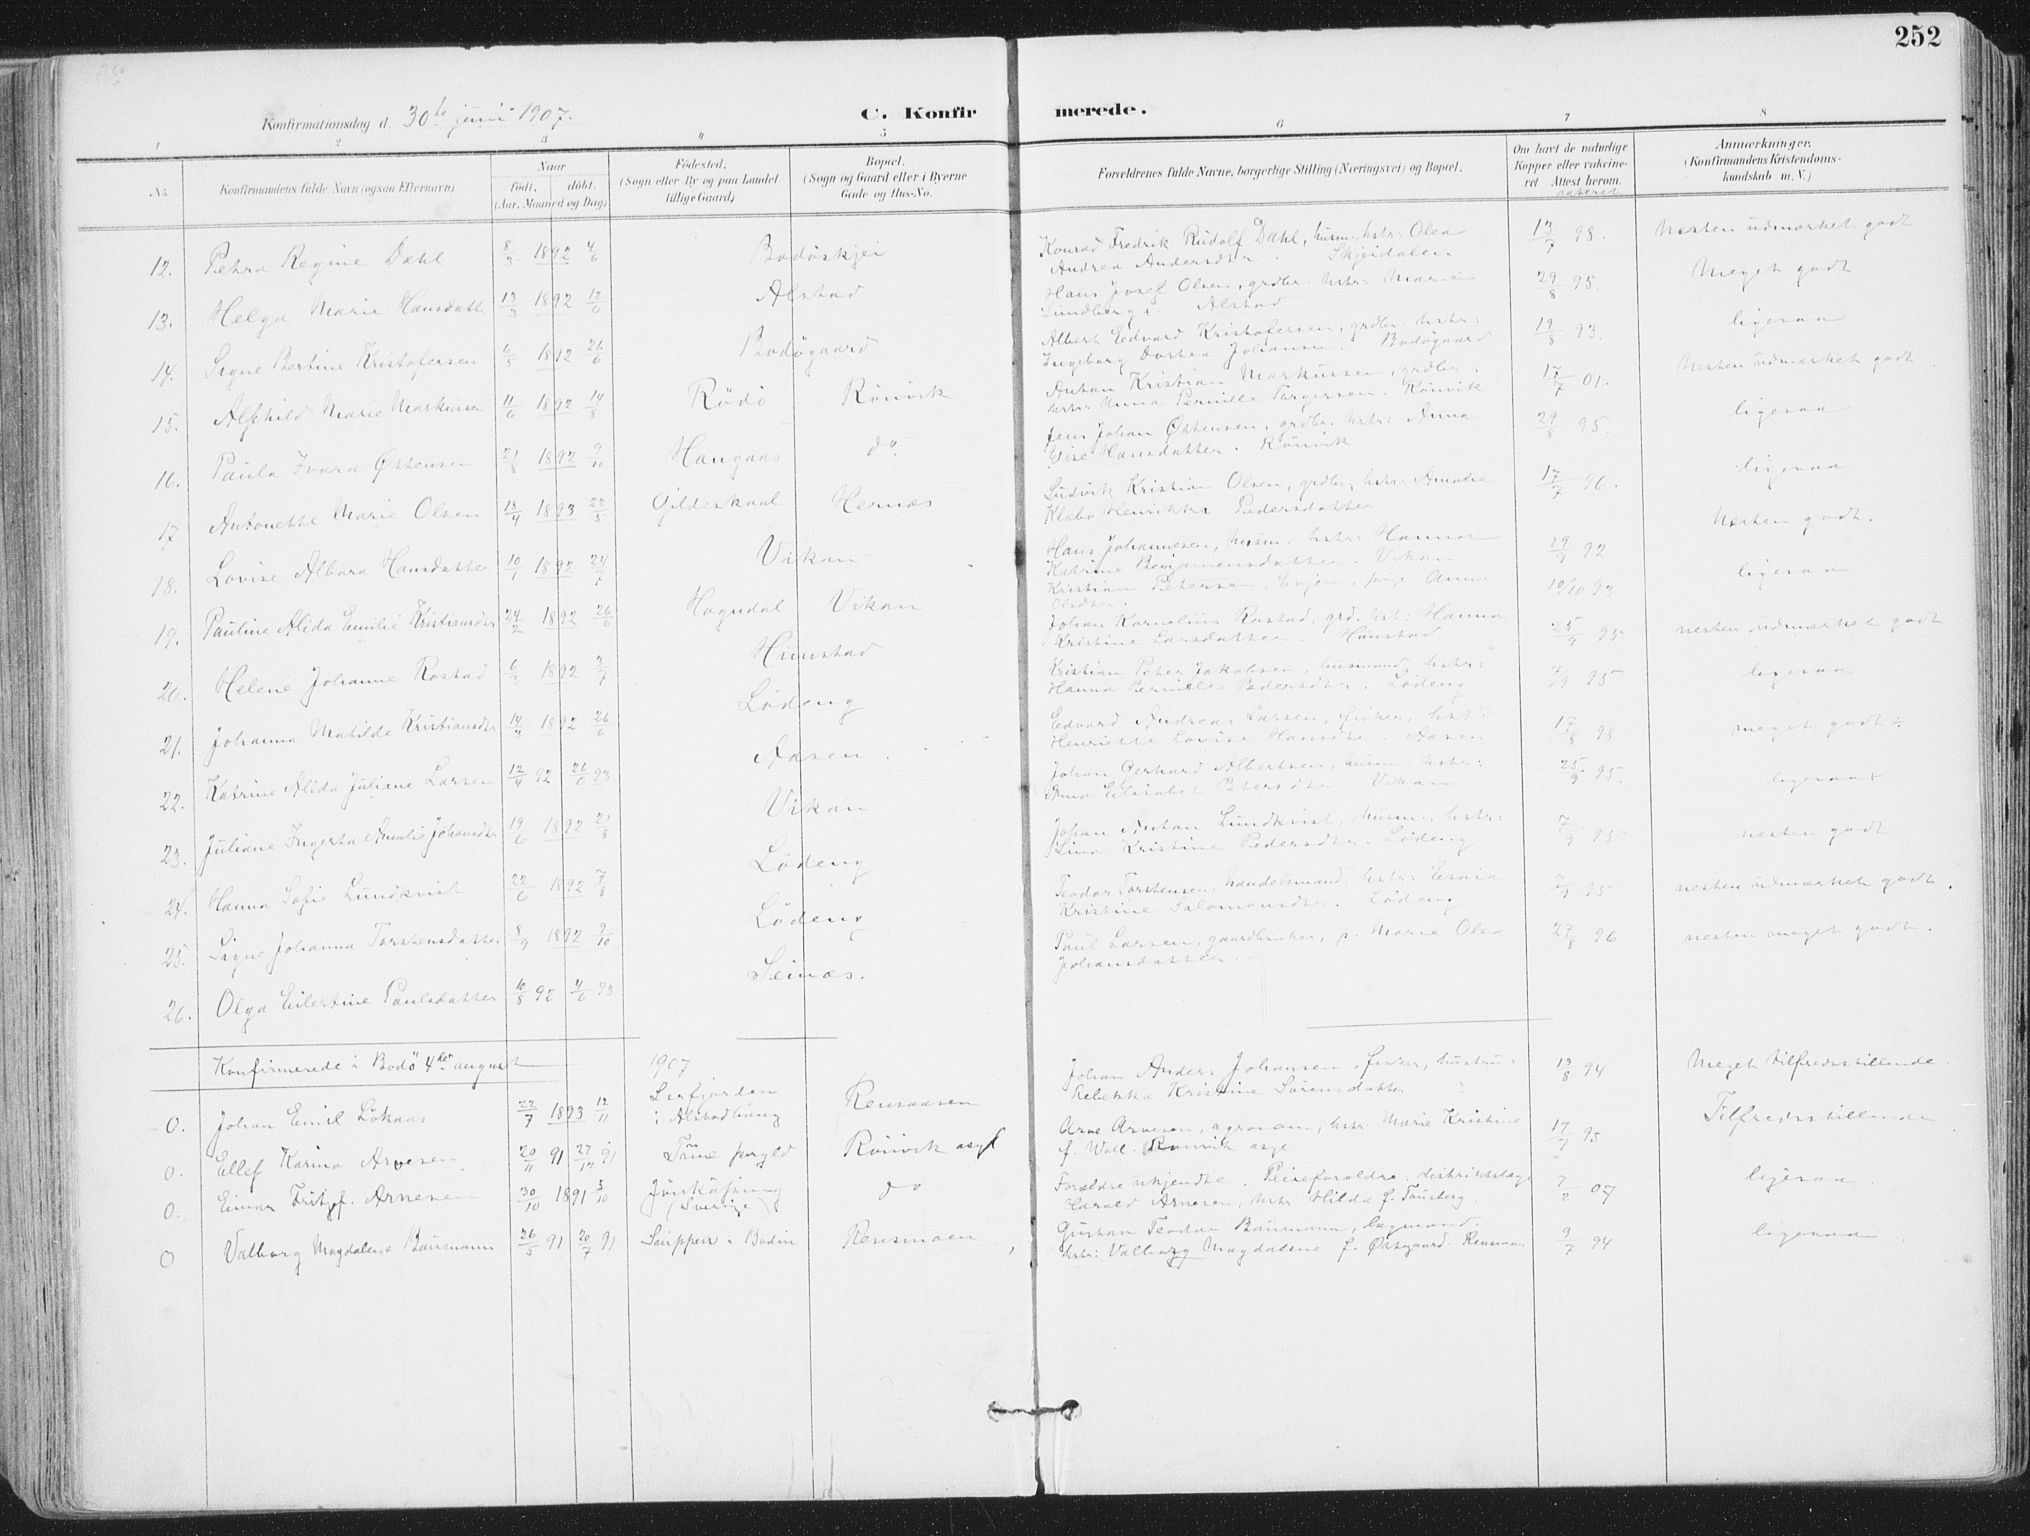 252
Konfirmationsdag d. 30te juni 1907.
C. Konfirmerede.
1 2 3 4 5 6 7 8
No. Konfirmandens fulde Navn (ogsaa Efternavn) Naar födt. döbt. (Aar, Maaned og Dag) Födested. (Sogn eller By og paa Landet tillige Gaard) Bopæl. (Sogn og Gaard eller i Byerne Gade og Hus-No. Forældrenes fulde Navne, borgerlige Stilling (Næringsvei) og Bopæl. Om havt de naturlige Kopper eller vakcineret Attest herom. dateret Anmærkninger. (Konfirmandens Kristendomskundskab m. V.)
12. Petra Regine Dahl 8/3 1892 4/6 Bodöskjei Konrad Fredrik Rudolf Dahl, husm., hstr: Olea 13/7 98. Nesten udmærket godt
Andrea Andersdtr. Skjeidalen
13. Helga Marie Hansdatter 13/3 1892 12/6 Alstad Hans Josef Olsen, grdbr. hstr: Marie 29/8 95. Meget godt
Lundberg. Alstad
14. Signe Bertine Kristofersen 6/5 1892 26/6 Bodögaard Albert Edvard Kristofersen, grdbr. hstr: 19/8 93. ligesaa
Ingeborg Dortea Johansen. Bodögaard
15. Alfhild Marie Markussen 11/6 1892 14/8 Rödö Rönvik Anton Kristian Markussen, grdbr. 17/7 01. Nesten udmærket godt.
hstr: Anna Pernille Torgersen. Rönvik
16. Paula Ivara Østensen 21/8 1892 9/10 Haugaas do. Jens Johan Østensen, grdbr. hstr: Anna 29/8 95. ligesaa
Elise Hansdatter. Rönvik
17 Antonette Marie Olsen 18/4 1893 22/5 Gildeskaal Hernæs Ludvik Kristian Olsen, grdbr, hstr: Amalie 17/7 96. ligesaa
Klabo Henrikke Pedersdatter
18. Lovise Albora Hansdatter 10/1 1892 24/7 Vikan Hans Johannesen, husm. hstr: Hanna 29/9 92 Nesten godt.
Katrine Benjamensdatter. Vikan
19. Pauline Alida Emilie Kristiansdtr 24/2 1892 26/6 Hogndal Vikan Kristian Petersen, pige Anna 10/10 93 ligesaa
Olsdtr.
20. Helene Johanne Rostad 6/3 1892 3/7 Hunstad Johan Kornelius Rostad, grd. hst: Hanna 25/9 95 nesten udmærket godt
Kristine Larsdatter. Hunstad
21. Johanna Matilde Kristiansdtr 14/4 1892 26/6 Lödeng Kristian Peter Jakobsen, husmand, hstr: 7/9 95 ligesaa
Hanna Pernille Pedersdtr. Lödeng
22. Katrine Alida Juliane Larsen 12/4 92 26/6 93 Aasen. Edvard Andreas Larsen, fisker, hst: 17/8 98 meget godt ÷
Henriette Lovise Hansdtr. Aasen
23. Juliane Ingerta Amalie Johansdtr 19/6 1892 21/8 Vikan Johan Gerhard Albertsen, husm. hstr: 25/9 95. ligesaa
Anna Elisabet Petersdtr. Vikan
24. Hanna Sofie Lundkvist 22/6 1892 7/8 Lödeng Johan Anton Lundkvist, husm., hstr: 7/9 95 nesten godt
Lina Kristine Pedersdtr. Lödeng
25. Signe Johanna Torstensdatter 8/9 1892 9/10 Lödeng Teodor Torstensen, handelsmand, hstr: Esaia 7/9 95 nesten udmærket godt.
Kristine Salomonsdtr. Lödeng
26. Olga Eilertine Paulsdatter 10/8 92 4/6 93 Seinæs. Paul Larsen, gaardbruker, p. Marie Olea 27/8 96 nesten meget godt.
Johansdatter.
Konfirmerede i Bodö 4de august 1907
0. Johan Emil Lökaas 22/7 1893 12/11 Leirfjorden i Alstadhaug Rensaasen Johan Anders Johansen, fisker, hustru: 13/8 94 Meget tilfredsstillende
Rebekka Kristine Sörensdatter
0. Ellef Karino Arnesen 20/11 91 27/12 91 Rönvik asyl Arne Arnesen, agronom, hstr: Marie Kristine 17/7 95 Tilfredsstillende
f. Wall. Rönvik asyl
0. Einar Fritjof Arnesen 30/10 1891 5/10 Jönköping (Sverige) do Forældre ukjendte. Pleieforældre: distriktslæge 7/2 07 ligesaa
Harald Arnesen, hstr Hilda f. Tönsberg.
0 Valborg Magdalene Baumann 26/5 91 20/7 91 i Bodin Rensmoen Gustav Teodor Baumann, 9/7 94 ligesaa
hstr: Valborg Magdalene f. Østgaard. Rensmoen